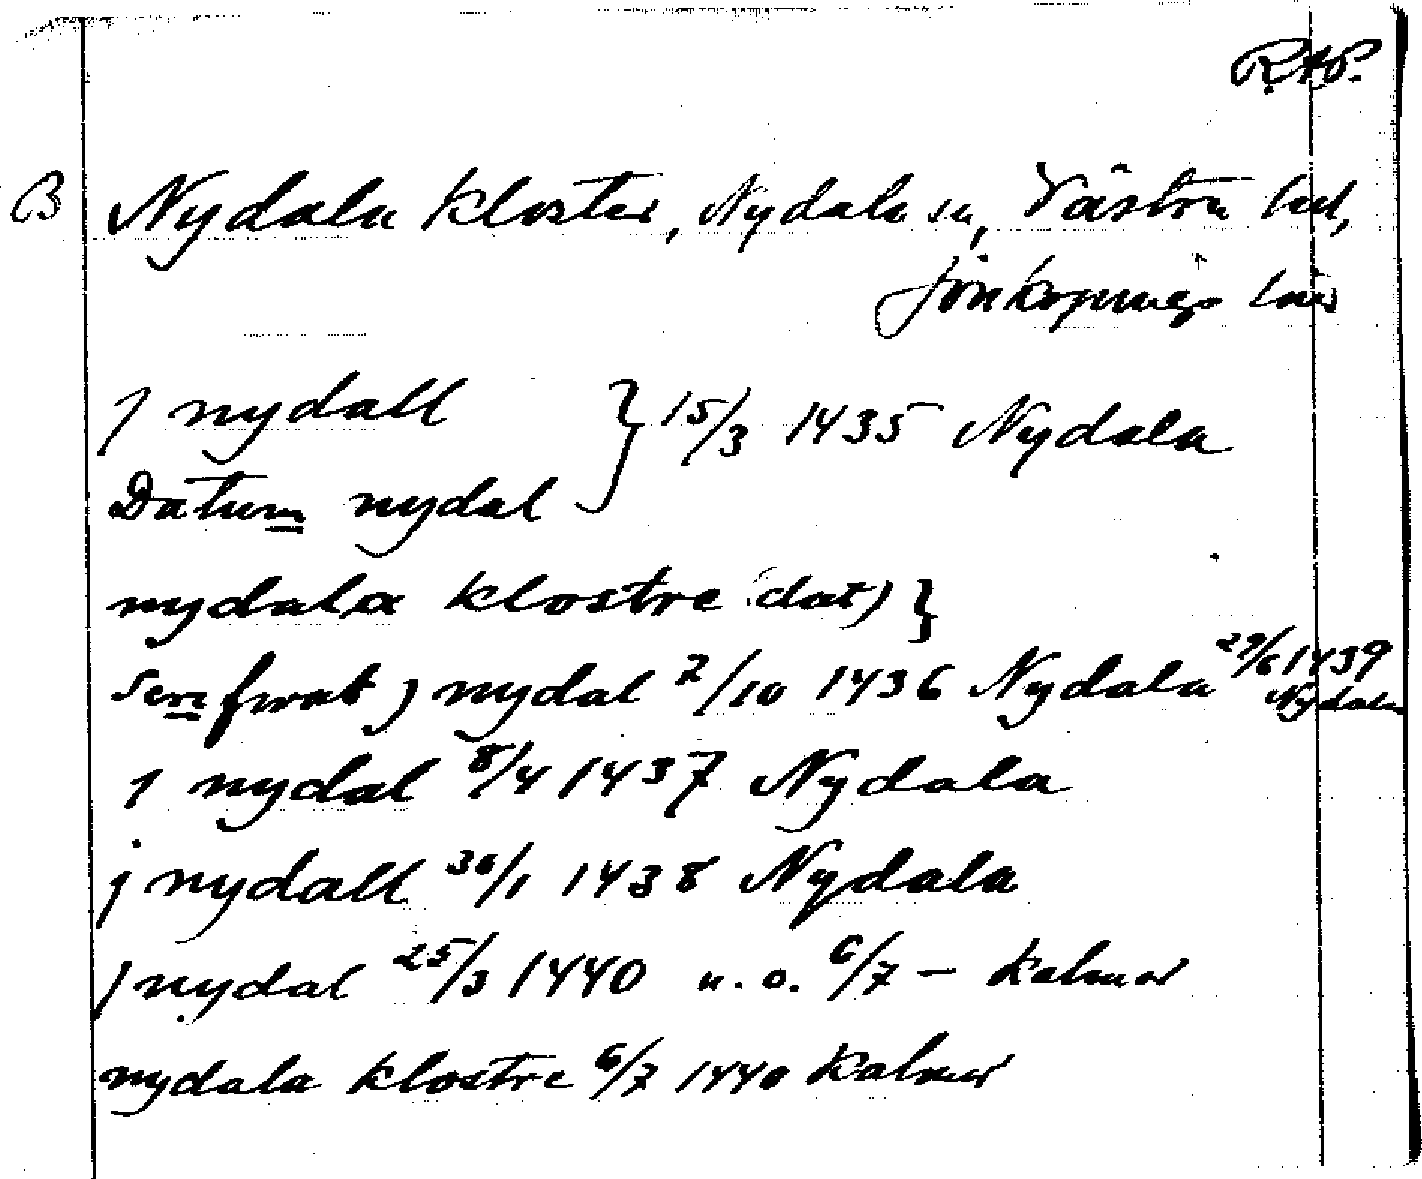 RAP.
B Nydala kloster, Nydala sn, Västra hd,
Jönköpings län
j nydall } 15/3 1435 Nydala
Datum nydal
nydala klostre (dat) }
Scriptum j nydal 2/10 1436 Nydala 29/6 1439 Nydala
j nydal 8/4 1437 Nydala
j nydall 30/1 1438 Nydala
j nydal 25/3 1440 u.o. 6/7 – Kalmar
nydala klostre 6/7 1440 Kalmar